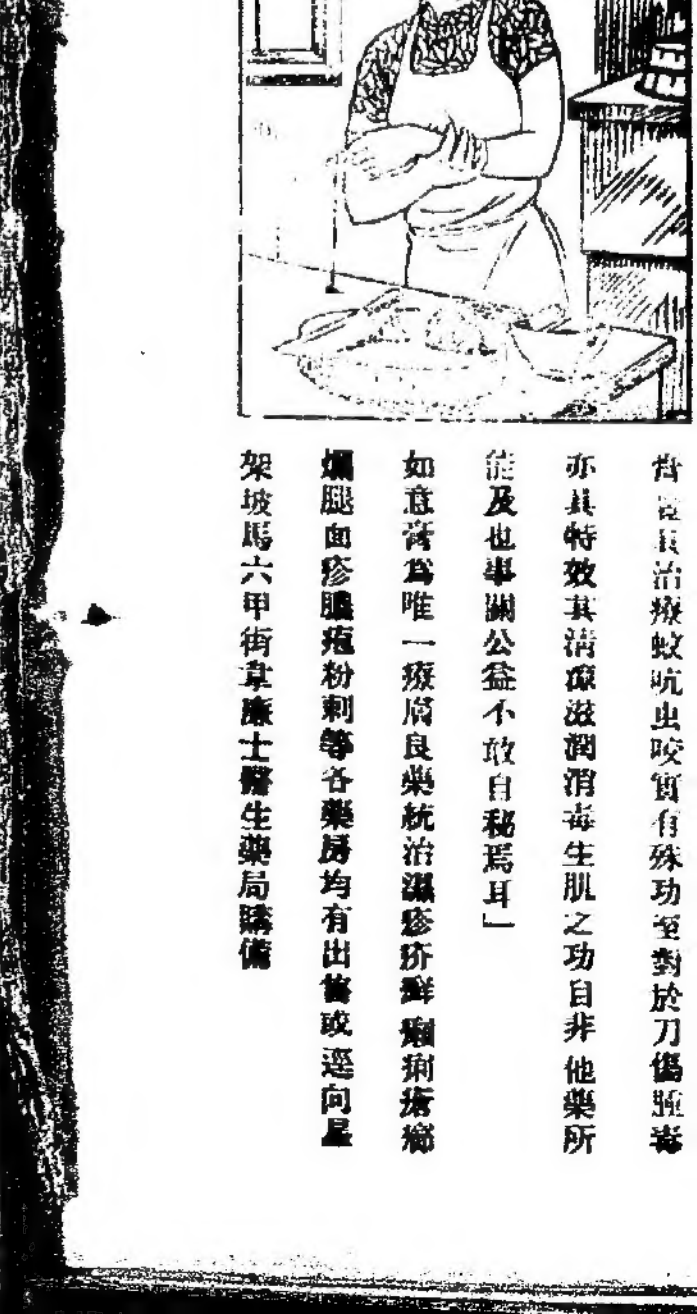 其治療蚊吮虫咬實有殊功至對於刀傷腫毒
亦具特效其清涼滋潤消毒生肌之功自非他藥所
能及也事關公益不敢自秘焉耳」
如意膏爲唯一療膚良藥統治濕疹疥癬痢瘡
爛腿面疹膿疱粉刺等各藥房均有出售或逕向星
架坡馬六甲街韋廉士醫生藥局購備